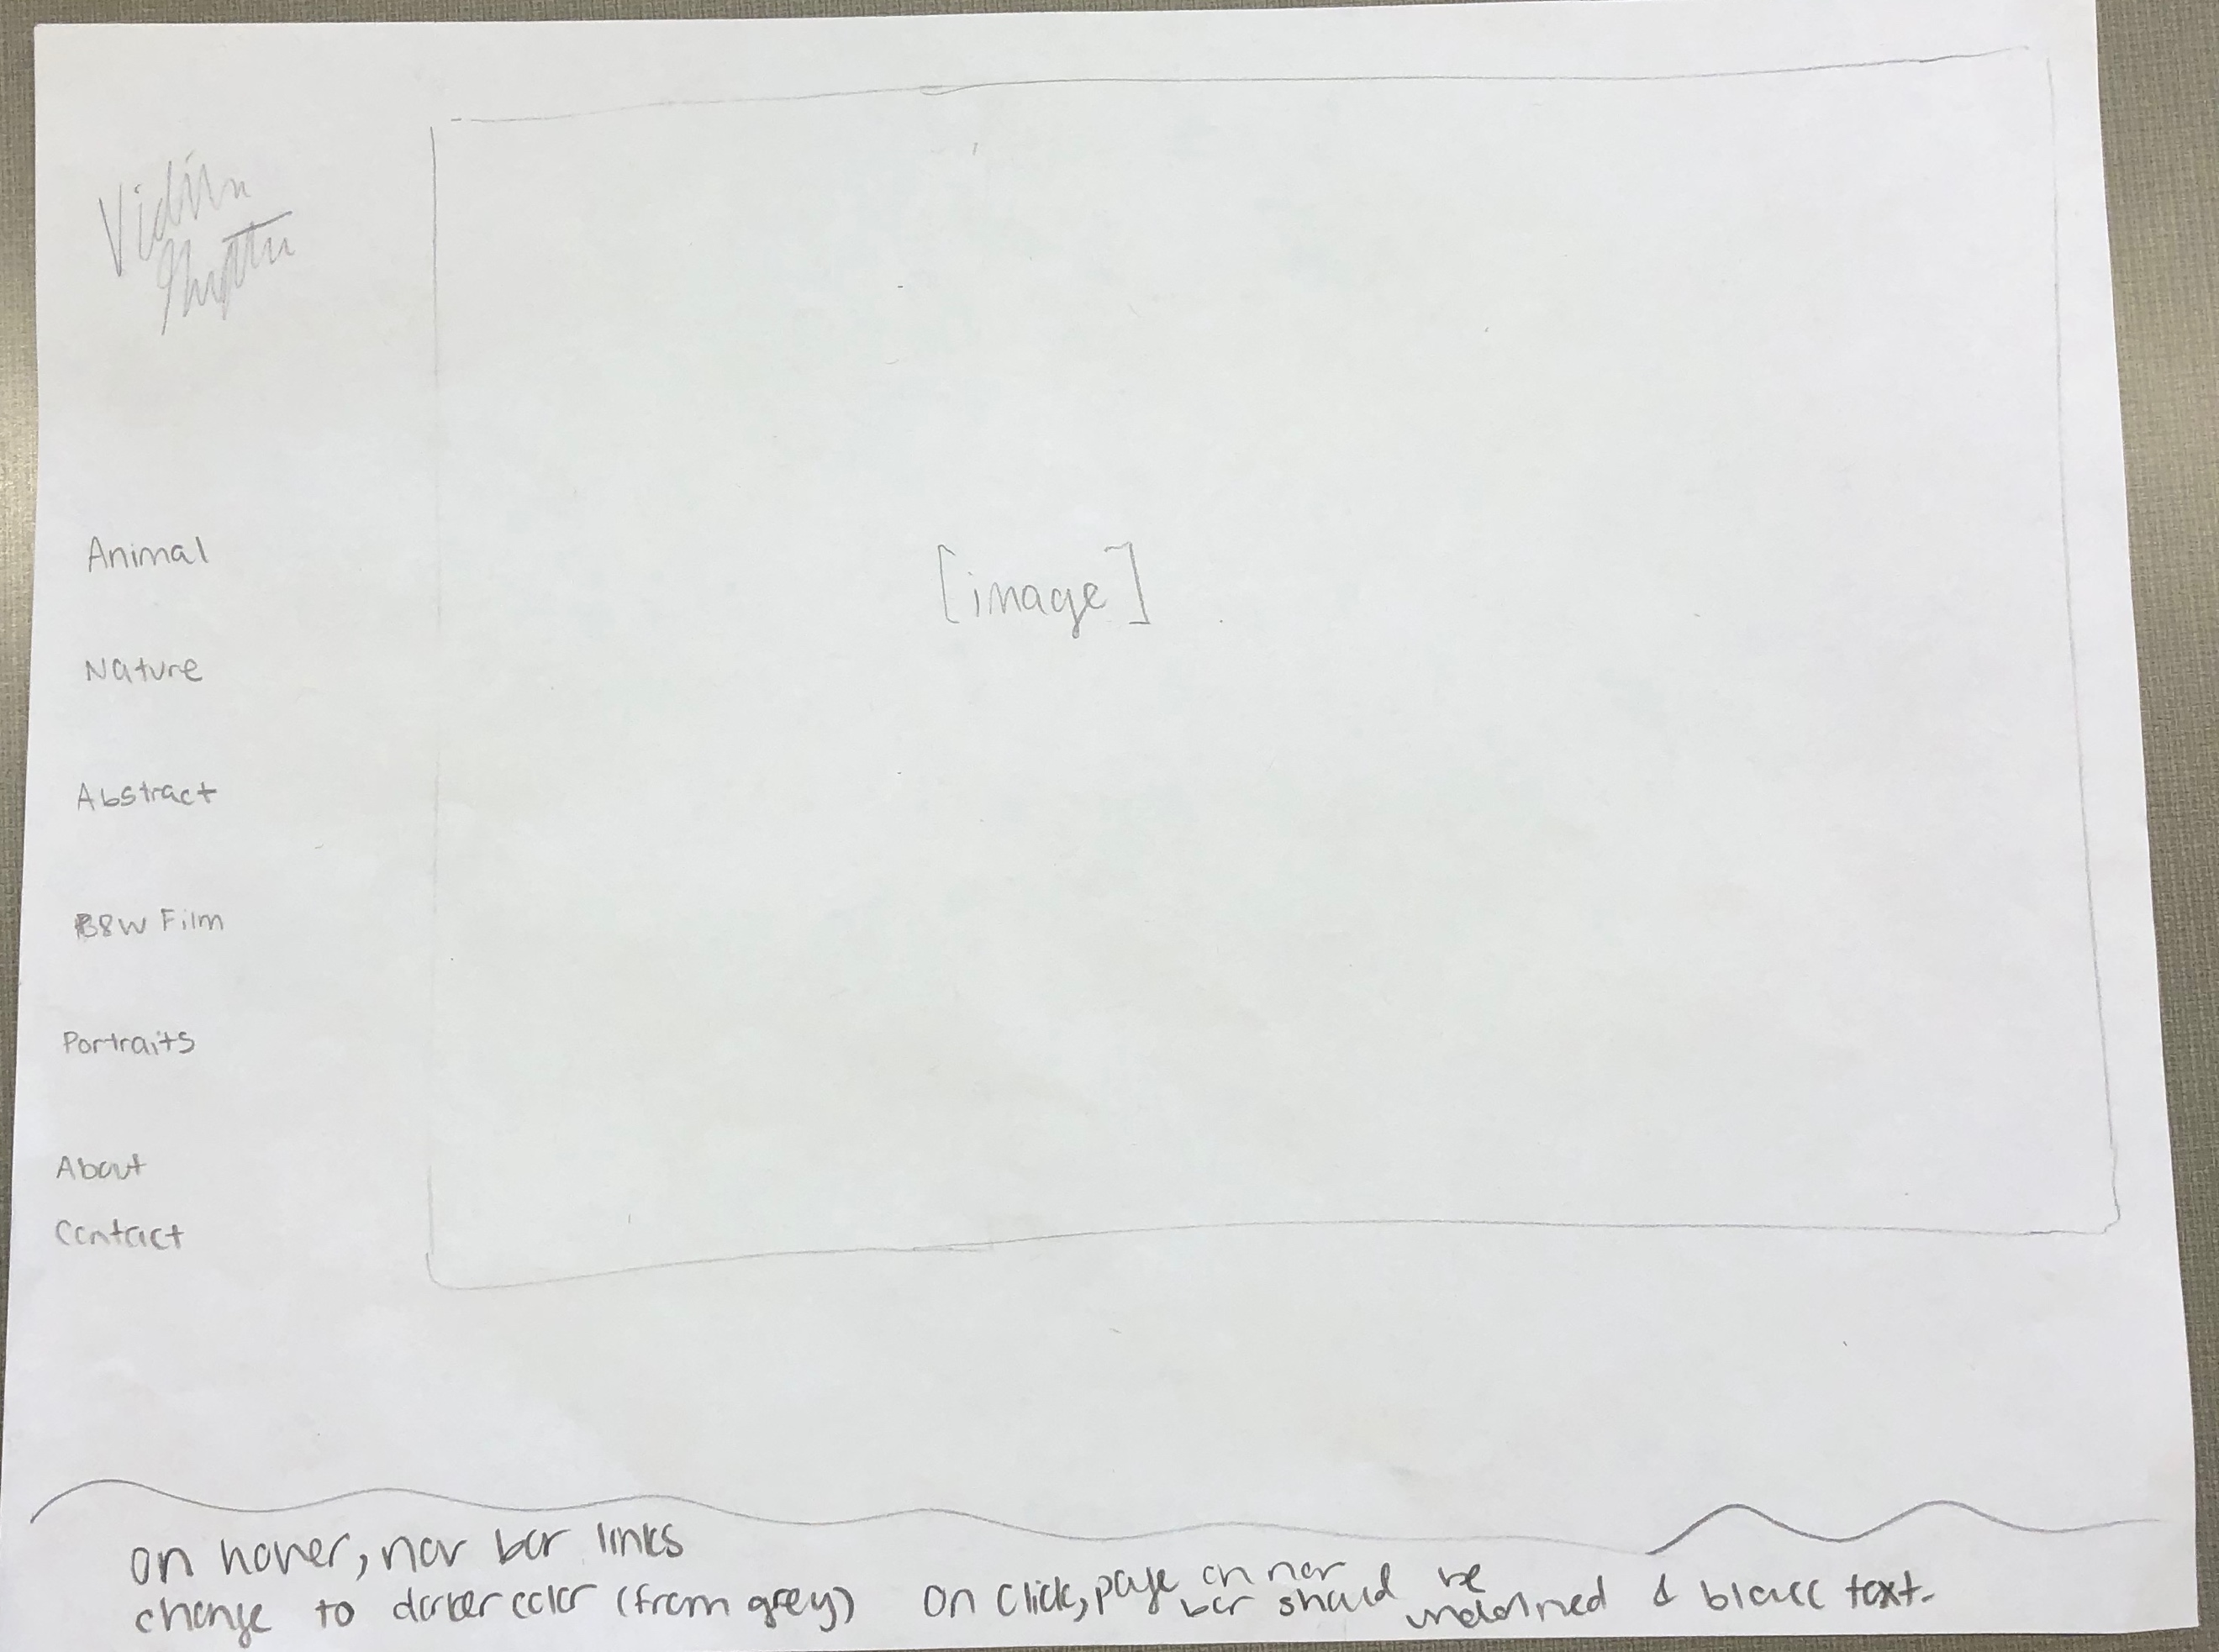 Animal
[image]
Nature
Abstract
B&W Film
Portraits
About
Contact
on hover, nav bar links
change to darker color (from grey)
on click, page on nav
bar should be
underlined & black text.